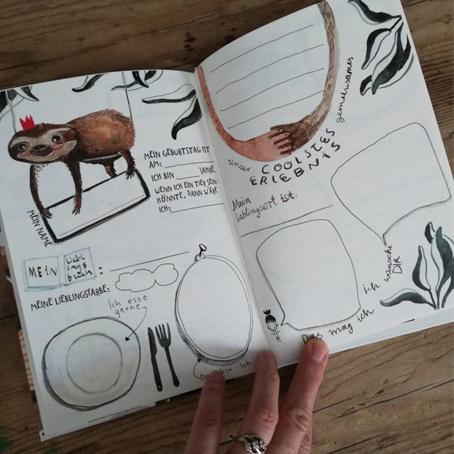 MEIN NAME
MEIN GEBURTSTAG IST
AM:
ICH BIN JAHRE,
WENN ICH EIN TIER SEIN
KÖNNTE, DANN WÄRE
ICH:
MEIN Lieblingsbuch:
MEINE LIEBLINGSFARBE:
Ich esse
gerne
ich
unser COOLSTES gemeinsames
ERLEBNIS
Mein
Lieblingsort ist:
ich wünsche
DIR
Das mag ich